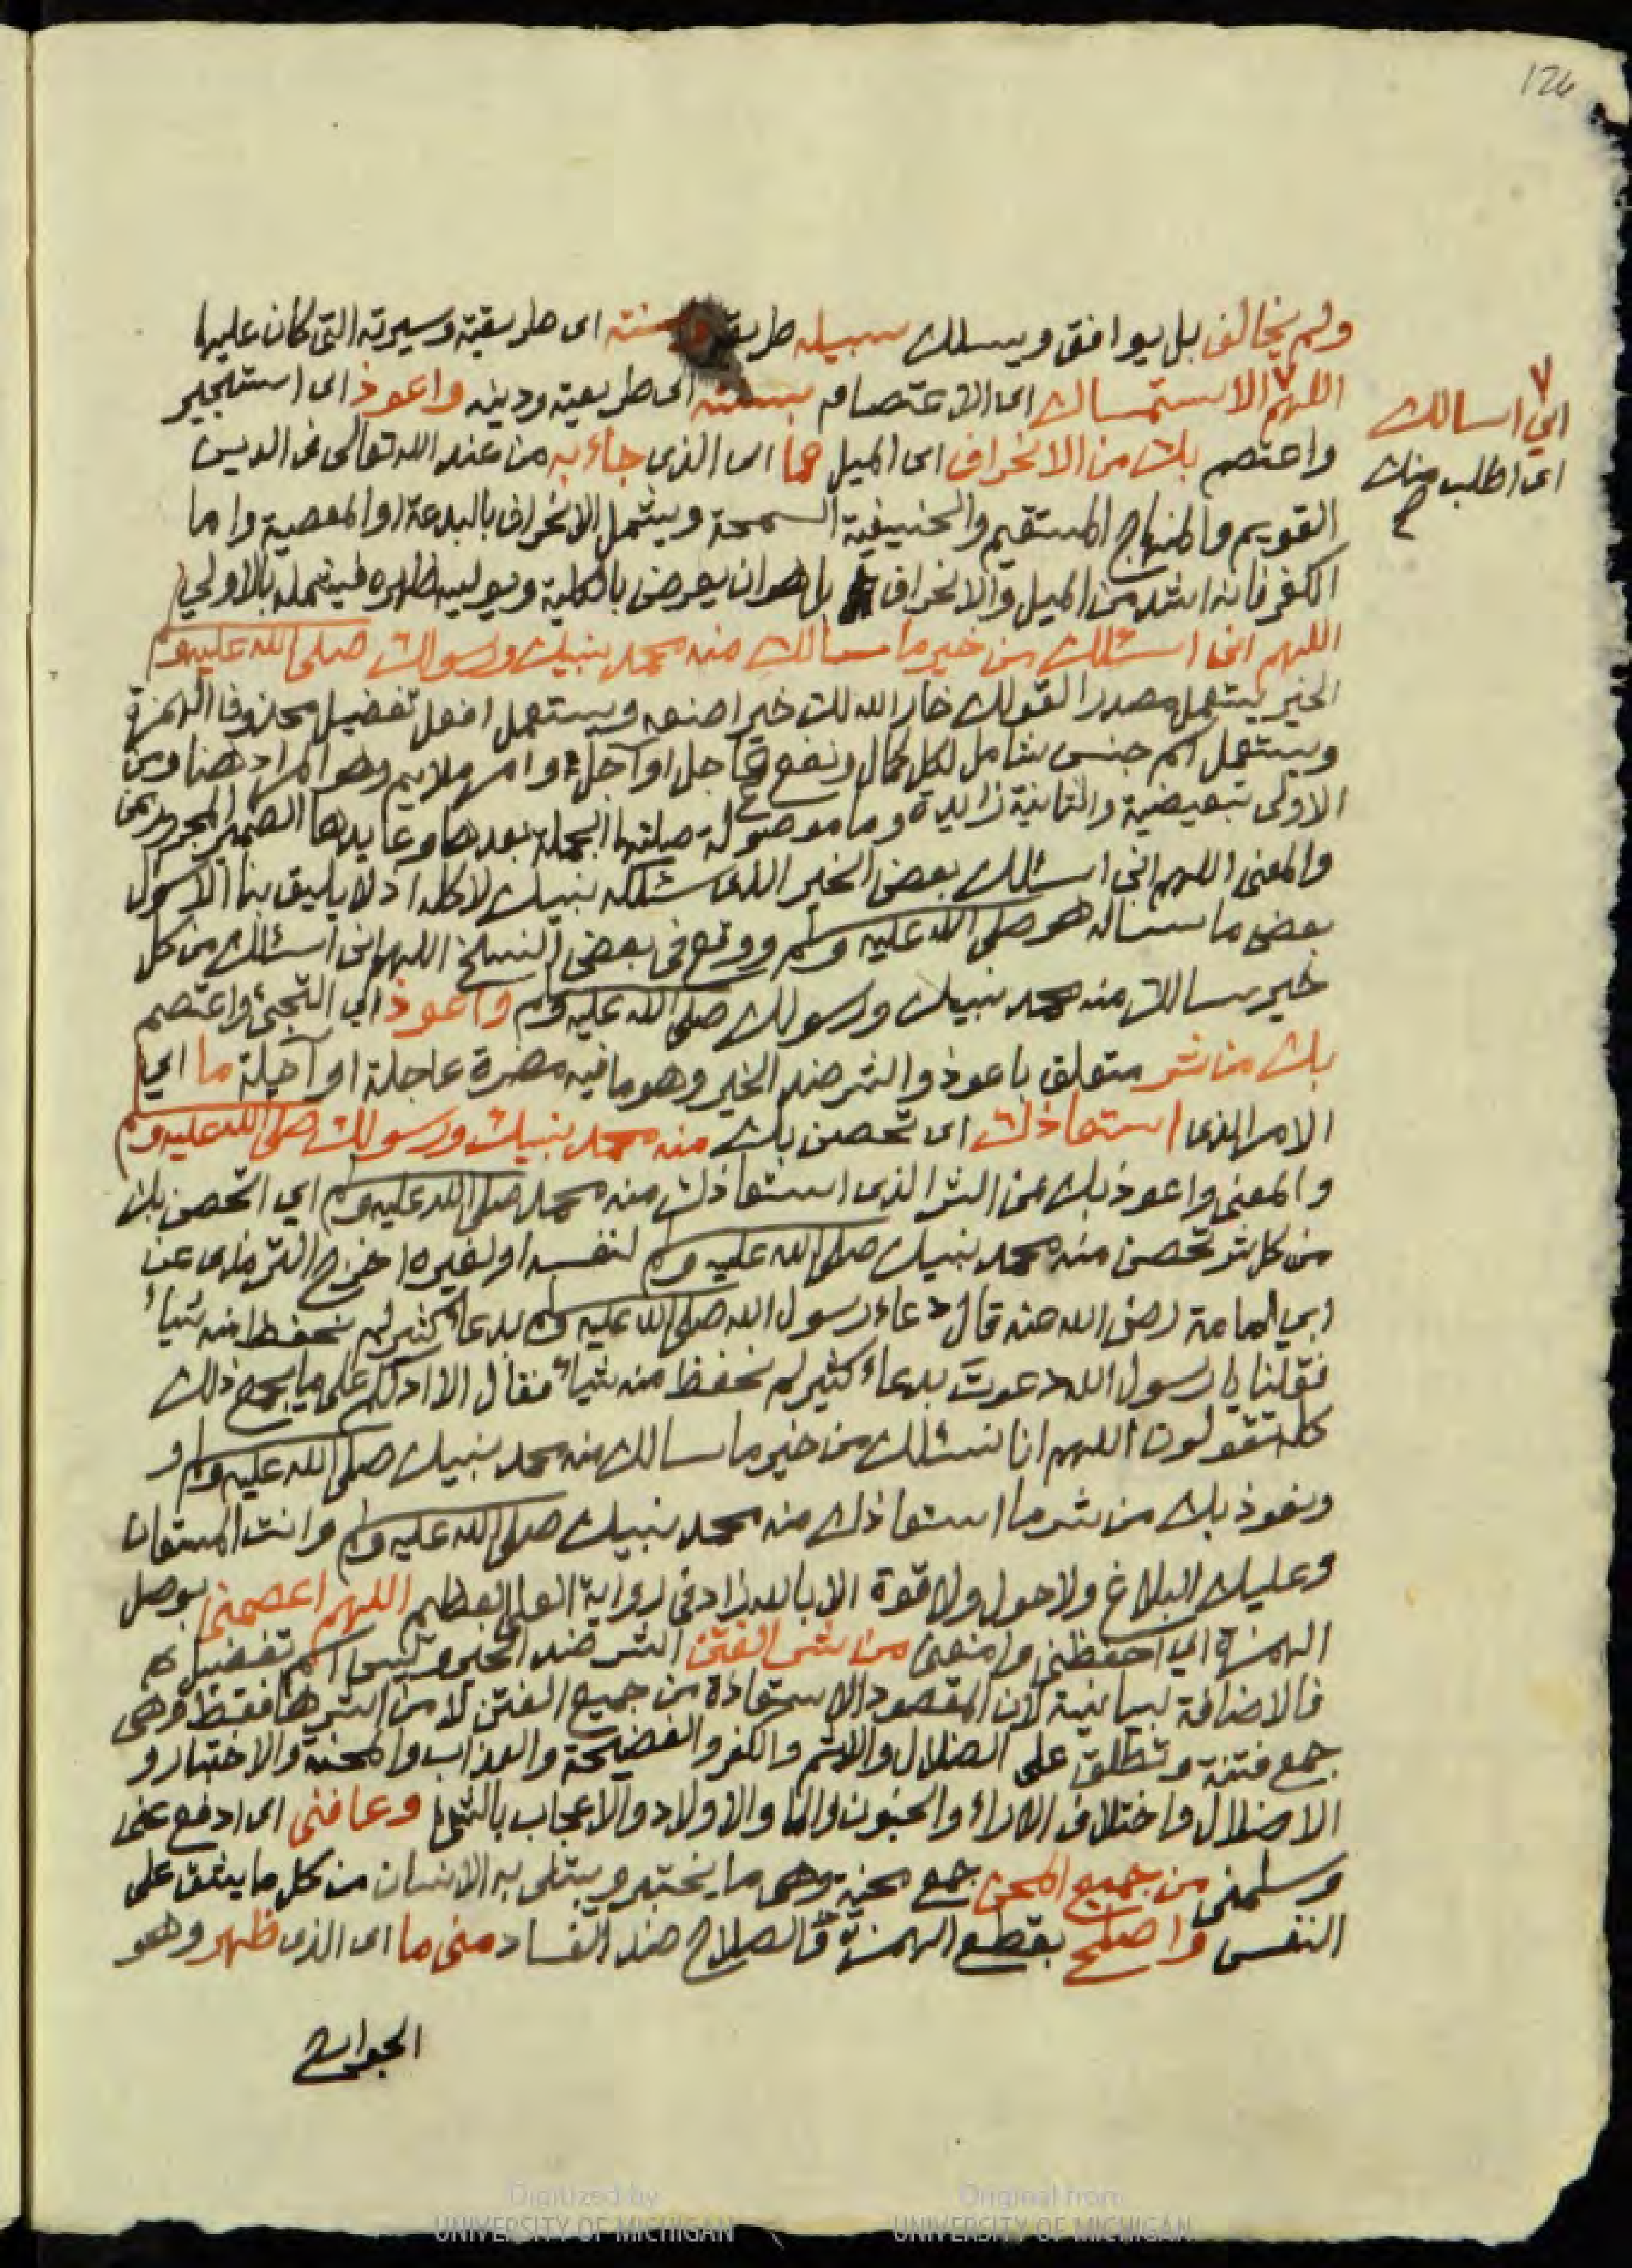 126
ولم يخالف بل يوافق ويسلك سبيله طريقه وسنته اى طريقته وسيرته التى كان عليها
اللهم الاستمساك اى الاعتصام بسنته اى طريقته ودينه واعوذ اى استجير
انى اسالك
اى اطلب منك
واعتصم بك من الانحراف اى الميل عما اى الذى جاء به من عند الله تعالى من الدين
القويم والمنهاج المستقيم والحنيفية السمحة ويشمل الانحراف بالبدعة او المعصية واما
الكفر فانه اشد من الميل والانحراف بل هو ان يعرض بالكلية ويوليه ظهره فيشمله بالاولى
اللهم انى اسئلك من خير ما سالك منه محمد نبيك ورسولك صلى الله عليه وم
الخير يستعمل مصدرا لقولك خار الله لك خيرا صنعه ويستعمل افعل تفضيل محذوف الهمزة
ويستعمل اسم جنس شامل لكل كمال ونفع عاجل او آجل وامر ملايم وهو المراد هنا ومن
الاولى تبعيضية والثانية زايدة وما موصولة صلتها الجملة بعدها وعايدها الضمير المجرور بمن
والمعنى اللهم انى اسئلك بعض الخير الذى سئلكه نبيك لا كله اذ لا يليق بنا الا سؤل
بعض ما ساله هو صلى الله عليه وسلم ووقع فى بعض النسخ اللهم انى اسئلك من كل
خير سالك منه محمد نبيك ورسولك صلى الله عليه وم واعوذ اى التجئ واعتصم
بك من شر متعلق باعوذ والشر ضد الخير وهو ما فيه مضرة عاجلة او آجلة ما اي
الامر الذى استعاذك اى تحصن بك منه محمد نبيك ورسولك صلى الله عليه وم
والمعنى واعوذ بك من الشر الذى استعاذك منه محمد صلى الله عليه وم اي اتحصن بك
من كل شر تحصن منه محمد نبيك صلى الله عليه وم لنفسه او لغيره اخرج الترمذى عن
ابى امامة رضى الله عنه قال دعاء رسول الله صلى الله عليه وم بدعاء كثير لم نحفظ منه شيأ
فقلنا يا رسول الله دعوت بدعاء كثير لم نحفظ منه شيأ فقال الا ادلكم على ما يجمع ذلك
كله تقولون اللهم انا نسئلك من خير ما سالك منه محمد نبيك صلى الله عليه وم و
ونعوذ بك من شر ما استعاذك منه محمد نبيك صلى الله عليه وم وانت المستعان
وعليك البلاغ ولا حول ولا قوة الا بالله زاد فى رواية العلى العظيم اللهم اعصمنى بوصل
الهمزة اي احفظنى وامنعنى من شر الفتن الشر ضد الخير وليس اسم تفضيل
فالاضافة بيانية لان المقصود الاستعاذة من جميع الفتن لا من اشرها فقط وهى
جمع فتنة وتطلق على الضلال والاثم والكفر والفضيحة والعذاب والمحنة والاختبار و
الاضلال واختلاف الاراء والجنون والمال والاولاد والاعجاب بالشئ وعافنى اى ادفع عنى
وسلمنى من جميع المحن جمع محنة وهى ما يختبر ويبتلى به الانسان من كل ما يشق على
النفس واصلح بقطع الهمزة والصلاح ضد الفساد منى ما اى الذى ظهر وهو
الجوارح
Digitized by
UNIVERSITY OF MICHIGAN
Original from
UNIVERSITY OF MICHIGAN